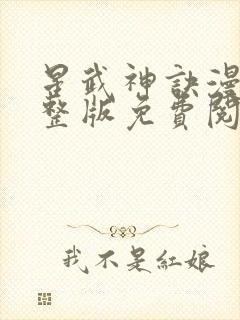 星武神訣漫
整版免費閱
我不是紅娘